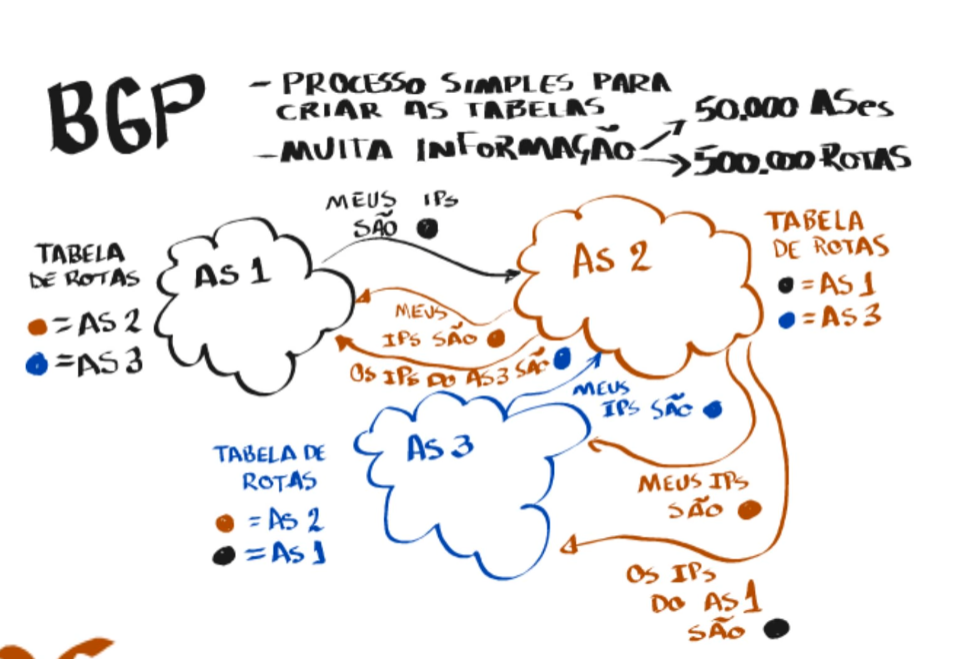 BGP
- PROCESSO SIMPLES PARA
CRIAR AS TABELAS
- MUITA INFORMAÇÃO
50.000 ASes
500.000 ROTAS
MEUS IPs
SÃO
TABELA
DE ROTAS
= AS 2
= AS 3
AS 1
AS 2
TABELA
DE ROTAS
= AS 1
= AS 3
MEUS
IPs SÃO
OS IPs DO AS3 SÃO
MEUS
IPs SÃO
AS 3
TABELA DE
ROTAS
= AS 2
= AS 1
MEUS IPs
SÃO
OS IPs
DO AS1
SÃO